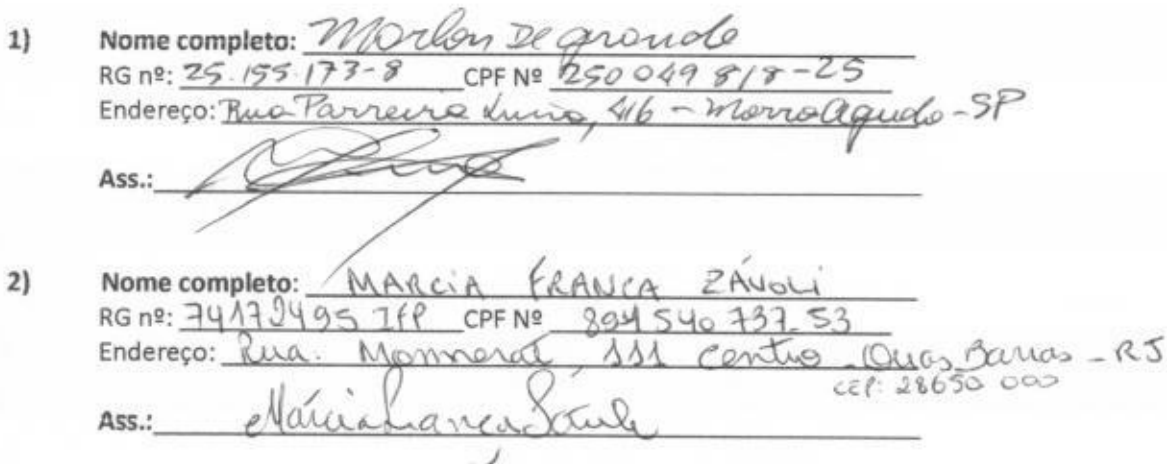 1) Nome completo: Marlon De grande
RG nº: 25.155.173-8 CPF Nº 250 049 818-25
Endereço: Rua Parreira Luiza, 416 - Morro Agudo - SP
Ass.:
2) Nome completo: MARCIA FRANCA ZÁVOLI
RG nº: 74172495 IFP CPF Nº 894 540 737-53
Endereço: Rua. Monnerat, 111 Centro - Duas Barras - RJ
CEP: 28650 000
Ass.: Márcia França